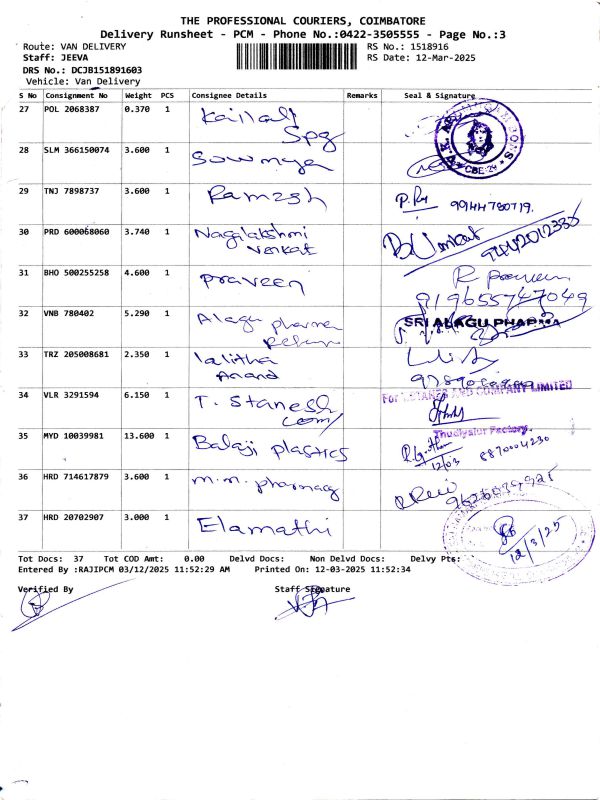 THE PROFESSIONAL COURIERS, COIMBATORE
Delivery Runsheet - PCM - Phone No.:0422-3505555 - Page No.:3
Route: VAN DELIVERY
RS No.: 1518916
Staff: JEEVA
RS Date: 12-Mar-2025
DRS No.: DCJB151891603
Vehicle: Van Delivery
S No Consignment No Weight PCS Consignee Details Remarks Seal & Signature
27 POL 2068387 0.370 1 Kailash
Spg
28 SLM 366150074 3.600 1 Sowmya
CBE-29
29 TNJ 7898737 3.600 1 Ramesh
9944780719.
30 PRD 600068060 3.740 1 Nagalakshmi
Venkat
B.Venkat
9442012335
31 BHO 500255258 4.600 1 Praveen
R Praveen
919655747049
32 VNB 780402 5.290 1 Alagu pharma
SRI ALAGU PHARMA
33 TRZ 205008681 2.350 1 lalitha
Anand
34 VLR 3291594 6.150 1 T. Stanesh
For T.STANES AND COMPANY LIMITED
35 MYD 10039981 13.600 1 Balaji plastics
Thudiyalur Factory.
12/03 8870004230
36 HRD 714617879 3.600 1 m.m. pharmacy
37 HRD 20702907 3.000 1 Elamathi
12/3/25
Tot Docs: 37 Tot COD Amt: 0.00 Delvd Docs: Non Delvd Docs: Delvy Pts:
Entered By :RAJIPCM 03/12/2025 11:52:29 AM Printed On: 12-03-2025 11:52:34
Verified By
Staff Signature